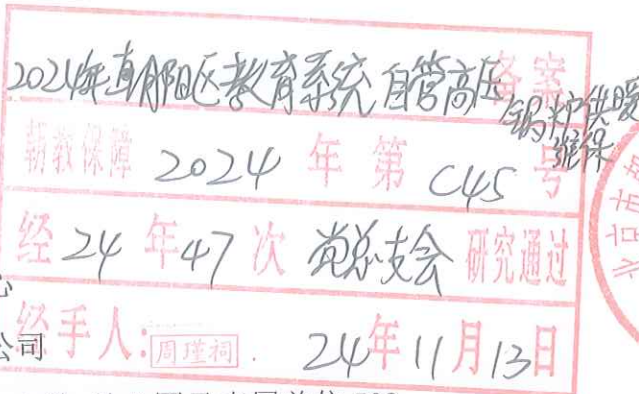 2024年朝阳区教育系统自管高压备案
锅炉供暖
维保
朝教保障 2024 年 第 C45 号
经 24 年 47 次 党总支会 研究通过
经手人: 周瑾祠. 24年11月13日
公司